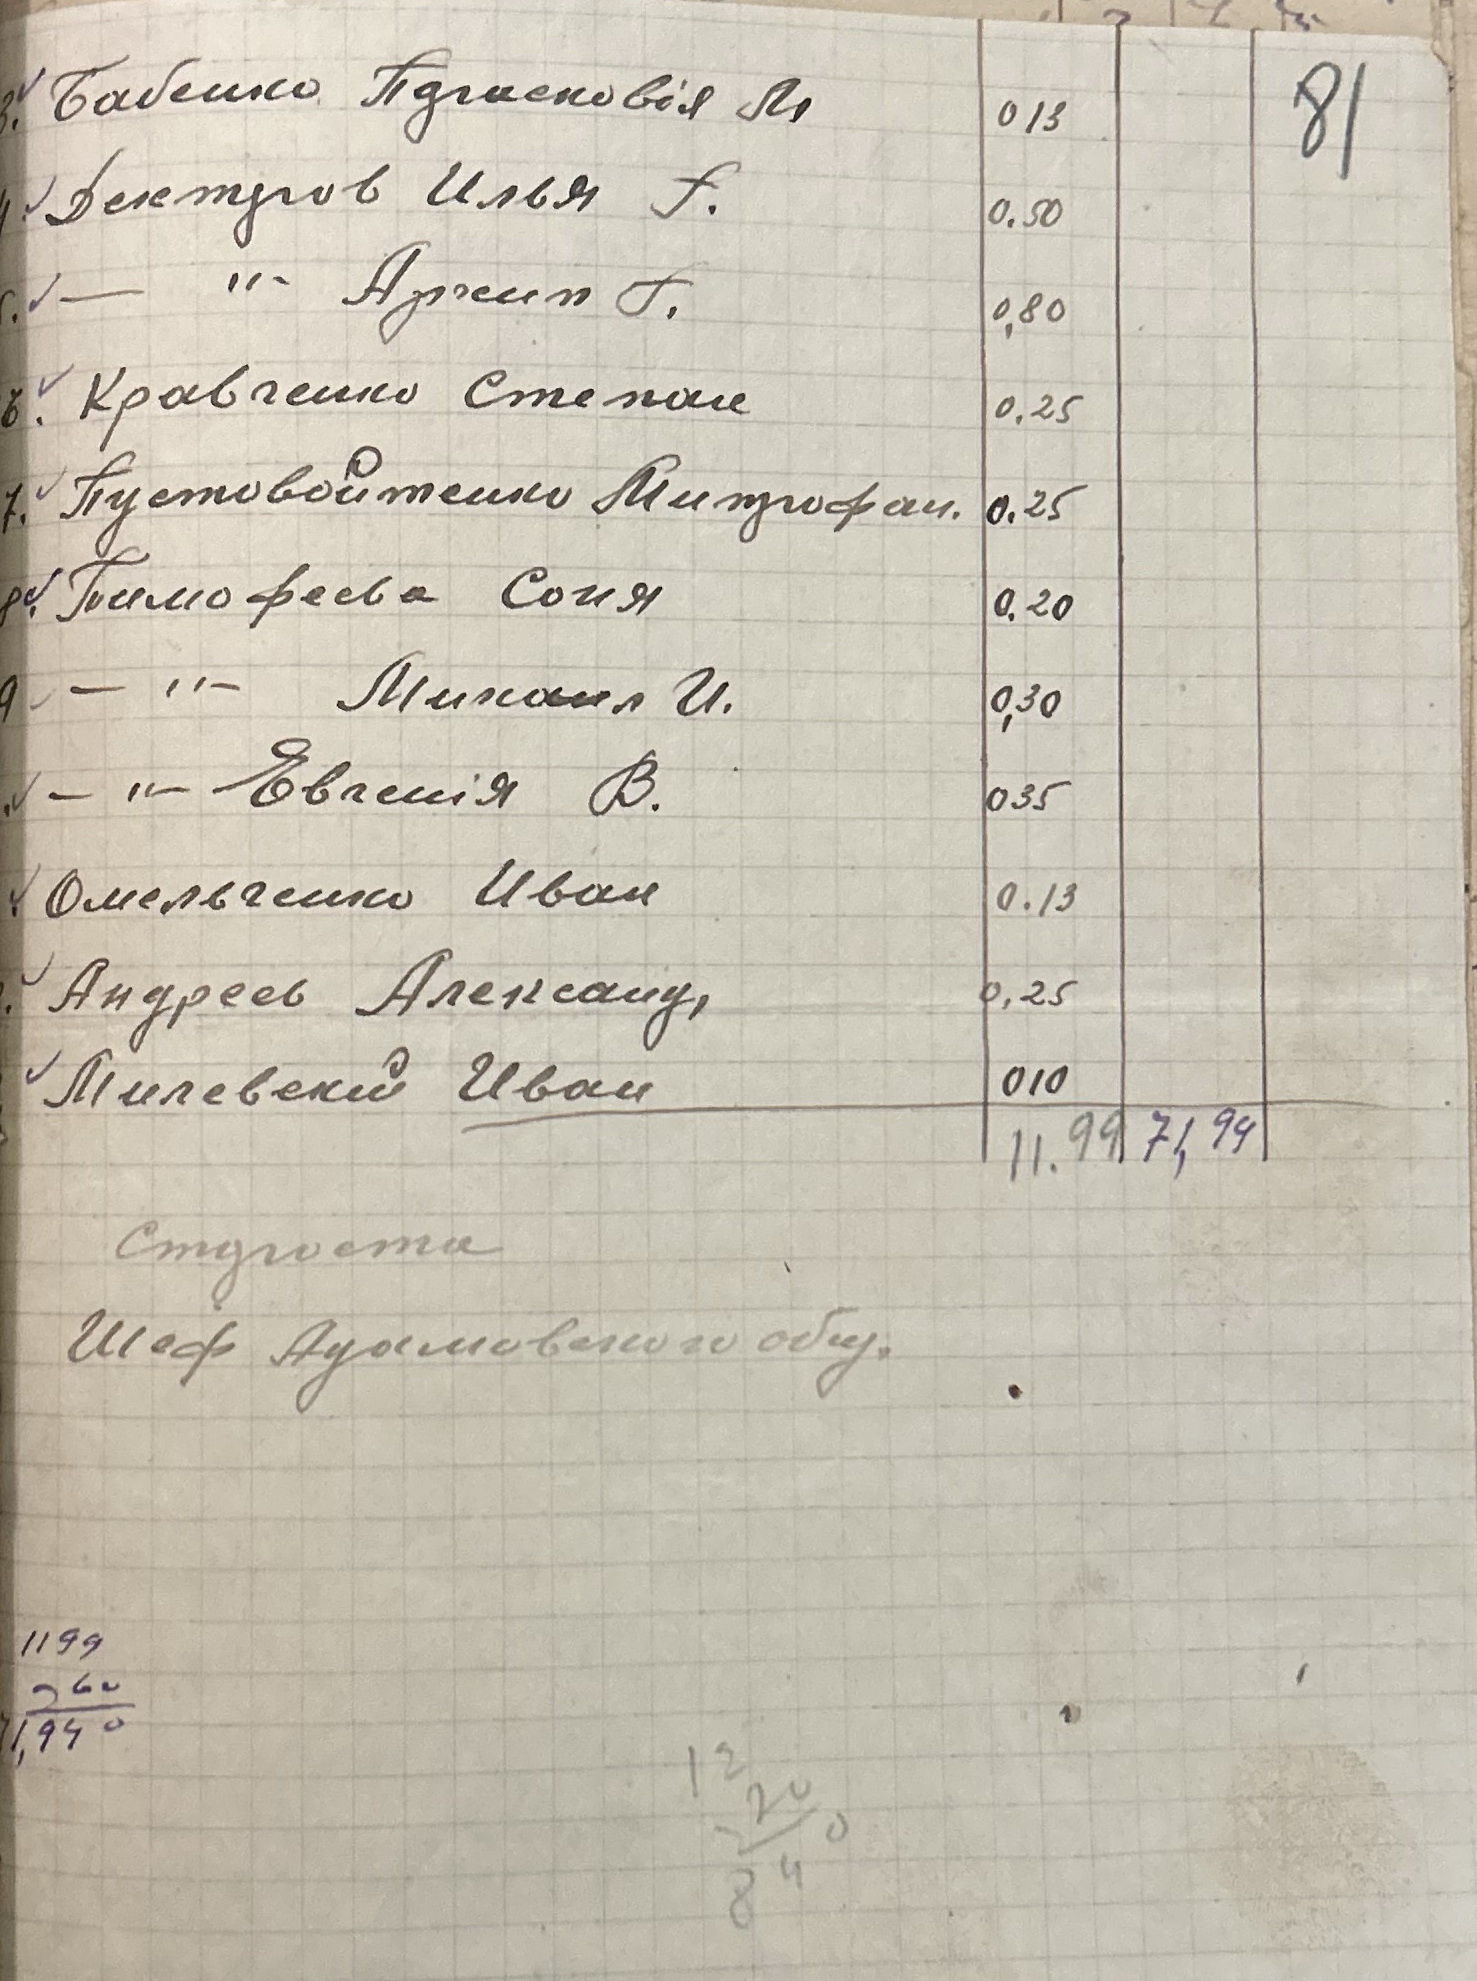 81
3. Бабенко Парасковія М 013
4. Дектяров Илья Г. 0.50
5. — " — Архип Г. 0,80
6. Кравченко Степан 0.25
7. Пустовойтенко Митрофан. 0.25
8. Тимофеева Соня 0.20
9 — " — Михаил И. 0,30
— " — Евгенія В. 035
Омельченко Иван 0.13
Андреев Александ, 0,25
Милевский Иван 010
11.99 71,94
Староста
Шеф Адамовского общ.
1199
60
71,940
12
20
840